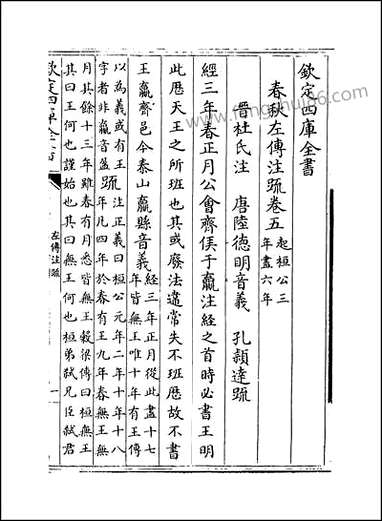 欽定四庫全書
春秋左傳注䟽卷五
起桓公三
年盡六年
晉杜氏注　唐陸德明音義　孔頴達䟽
經三年春正月公會齊侯于嬴注經之首時必書王明
此厯天王之所班也其或廢法違常失不班厯故不書
王嬴齊邑今泰山嬴縣音義
經三年正月從此盡十七
年皆無王唯十年有王傳
以為義或有王
字者非嬴音盈
䟽
注正義曰桓公元年二年十年十八
年凡四年於春有王九年春無王無
月其餘十三年雖春有月悉皆無王榖梁傳曰桓無王
其曰王何也謹始也其曰無王何也桓弟弑兄臣弑君
欽定四庫全書
左傳注疏
一